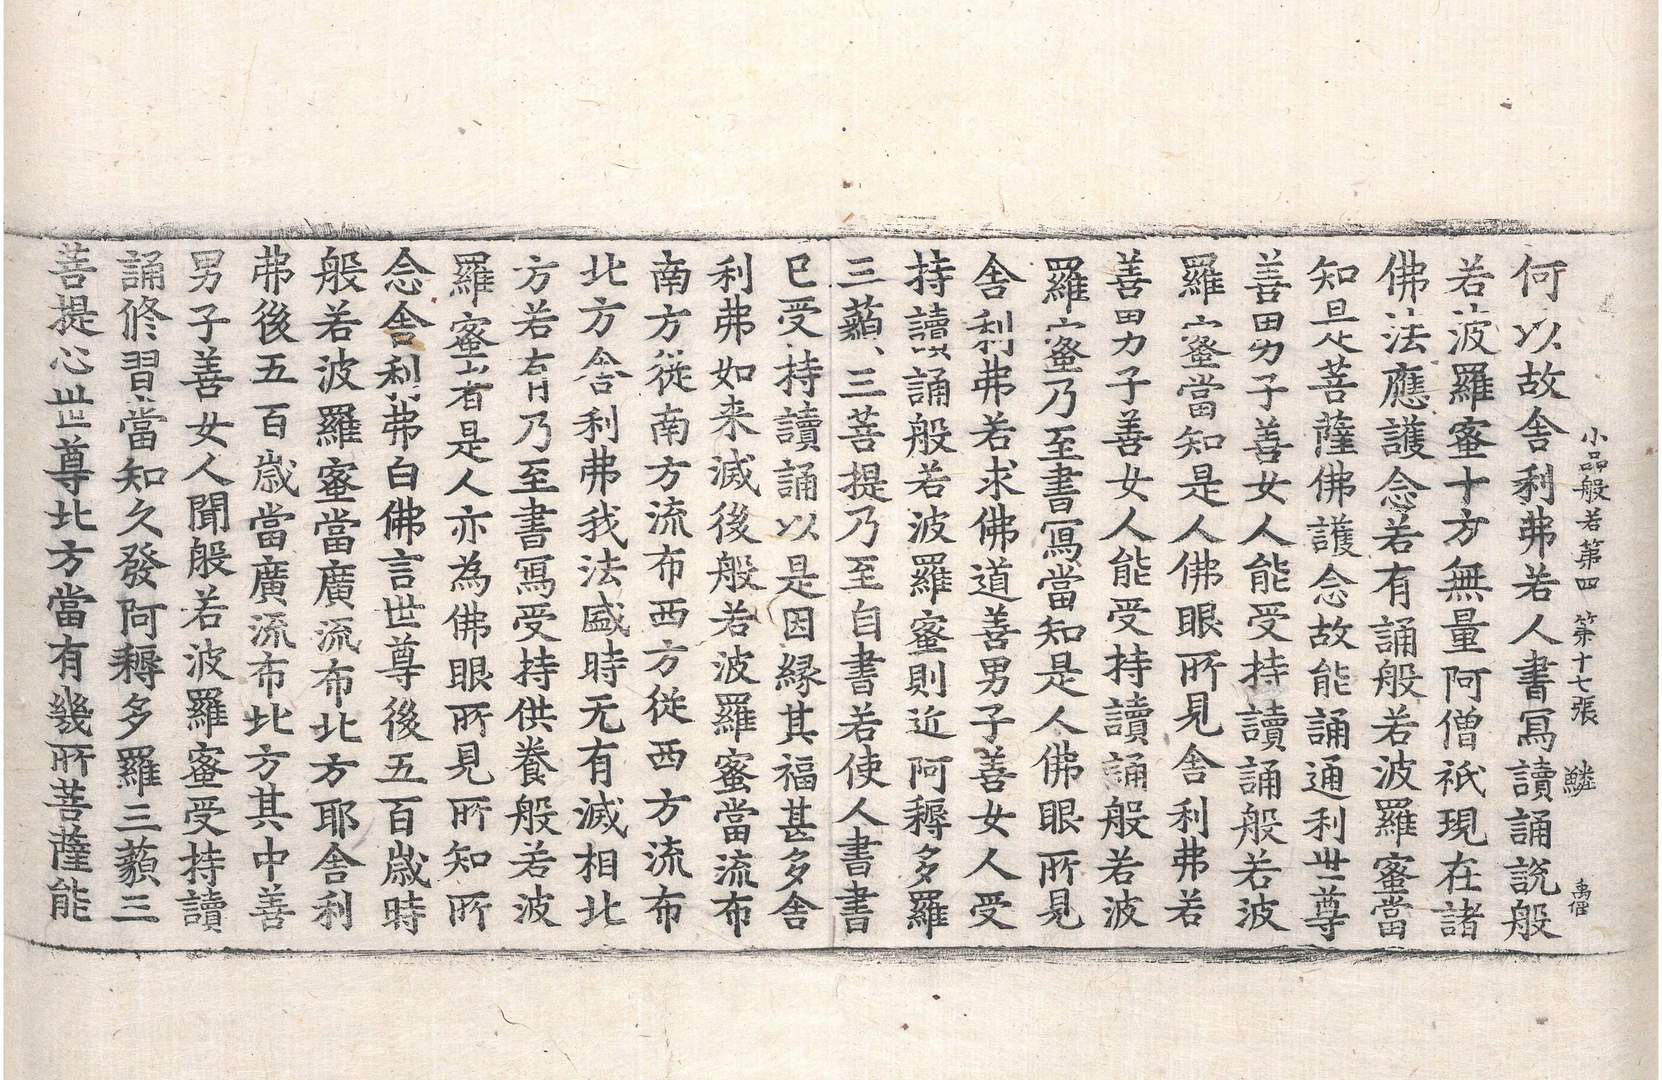 小品般若第四 第十七張 鱗 禹
何以故舍利弗若人書寫讀誦說般
若波羅蜜十方無量阿僧祇現在諸
佛法應護念若有誦般若波羅蜜當
知是菩薩佛護念故能誦通利世尊
善男子善女人能受持讀誦般若波
羅蜜當知是人佛眼所見舍利弗若
善男子善女人能受持讀誦般若波
羅蜜乃至書寫當知是人佛眼所見
舍利弗若求佛道善男子善女人受
持讀誦般若波羅蜜則近阿耨多羅
三藐三菩提乃至自書若使人書書
已受持讀誦以是因緣其福甚多舍
利弗如来滅後般若波羅蜜當流布
南方從南方流布西方從西方流布
北方舍利弗我法盛時无有滅相北
方若有乃至書寫受持供養般若波
羅蜜者是人亦為佛眼所見所知所
念舍利弗白佛言世尊後五百歲時
般若波羅蜜當廣流布北方耶舍利
弗後五百歲當廣流布北方其中善
男子善女人聞般若波羅蜜受持讀
誦修習當知久發阿耨多羅三藐三
菩提心世尊北方當有幾所菩薩能